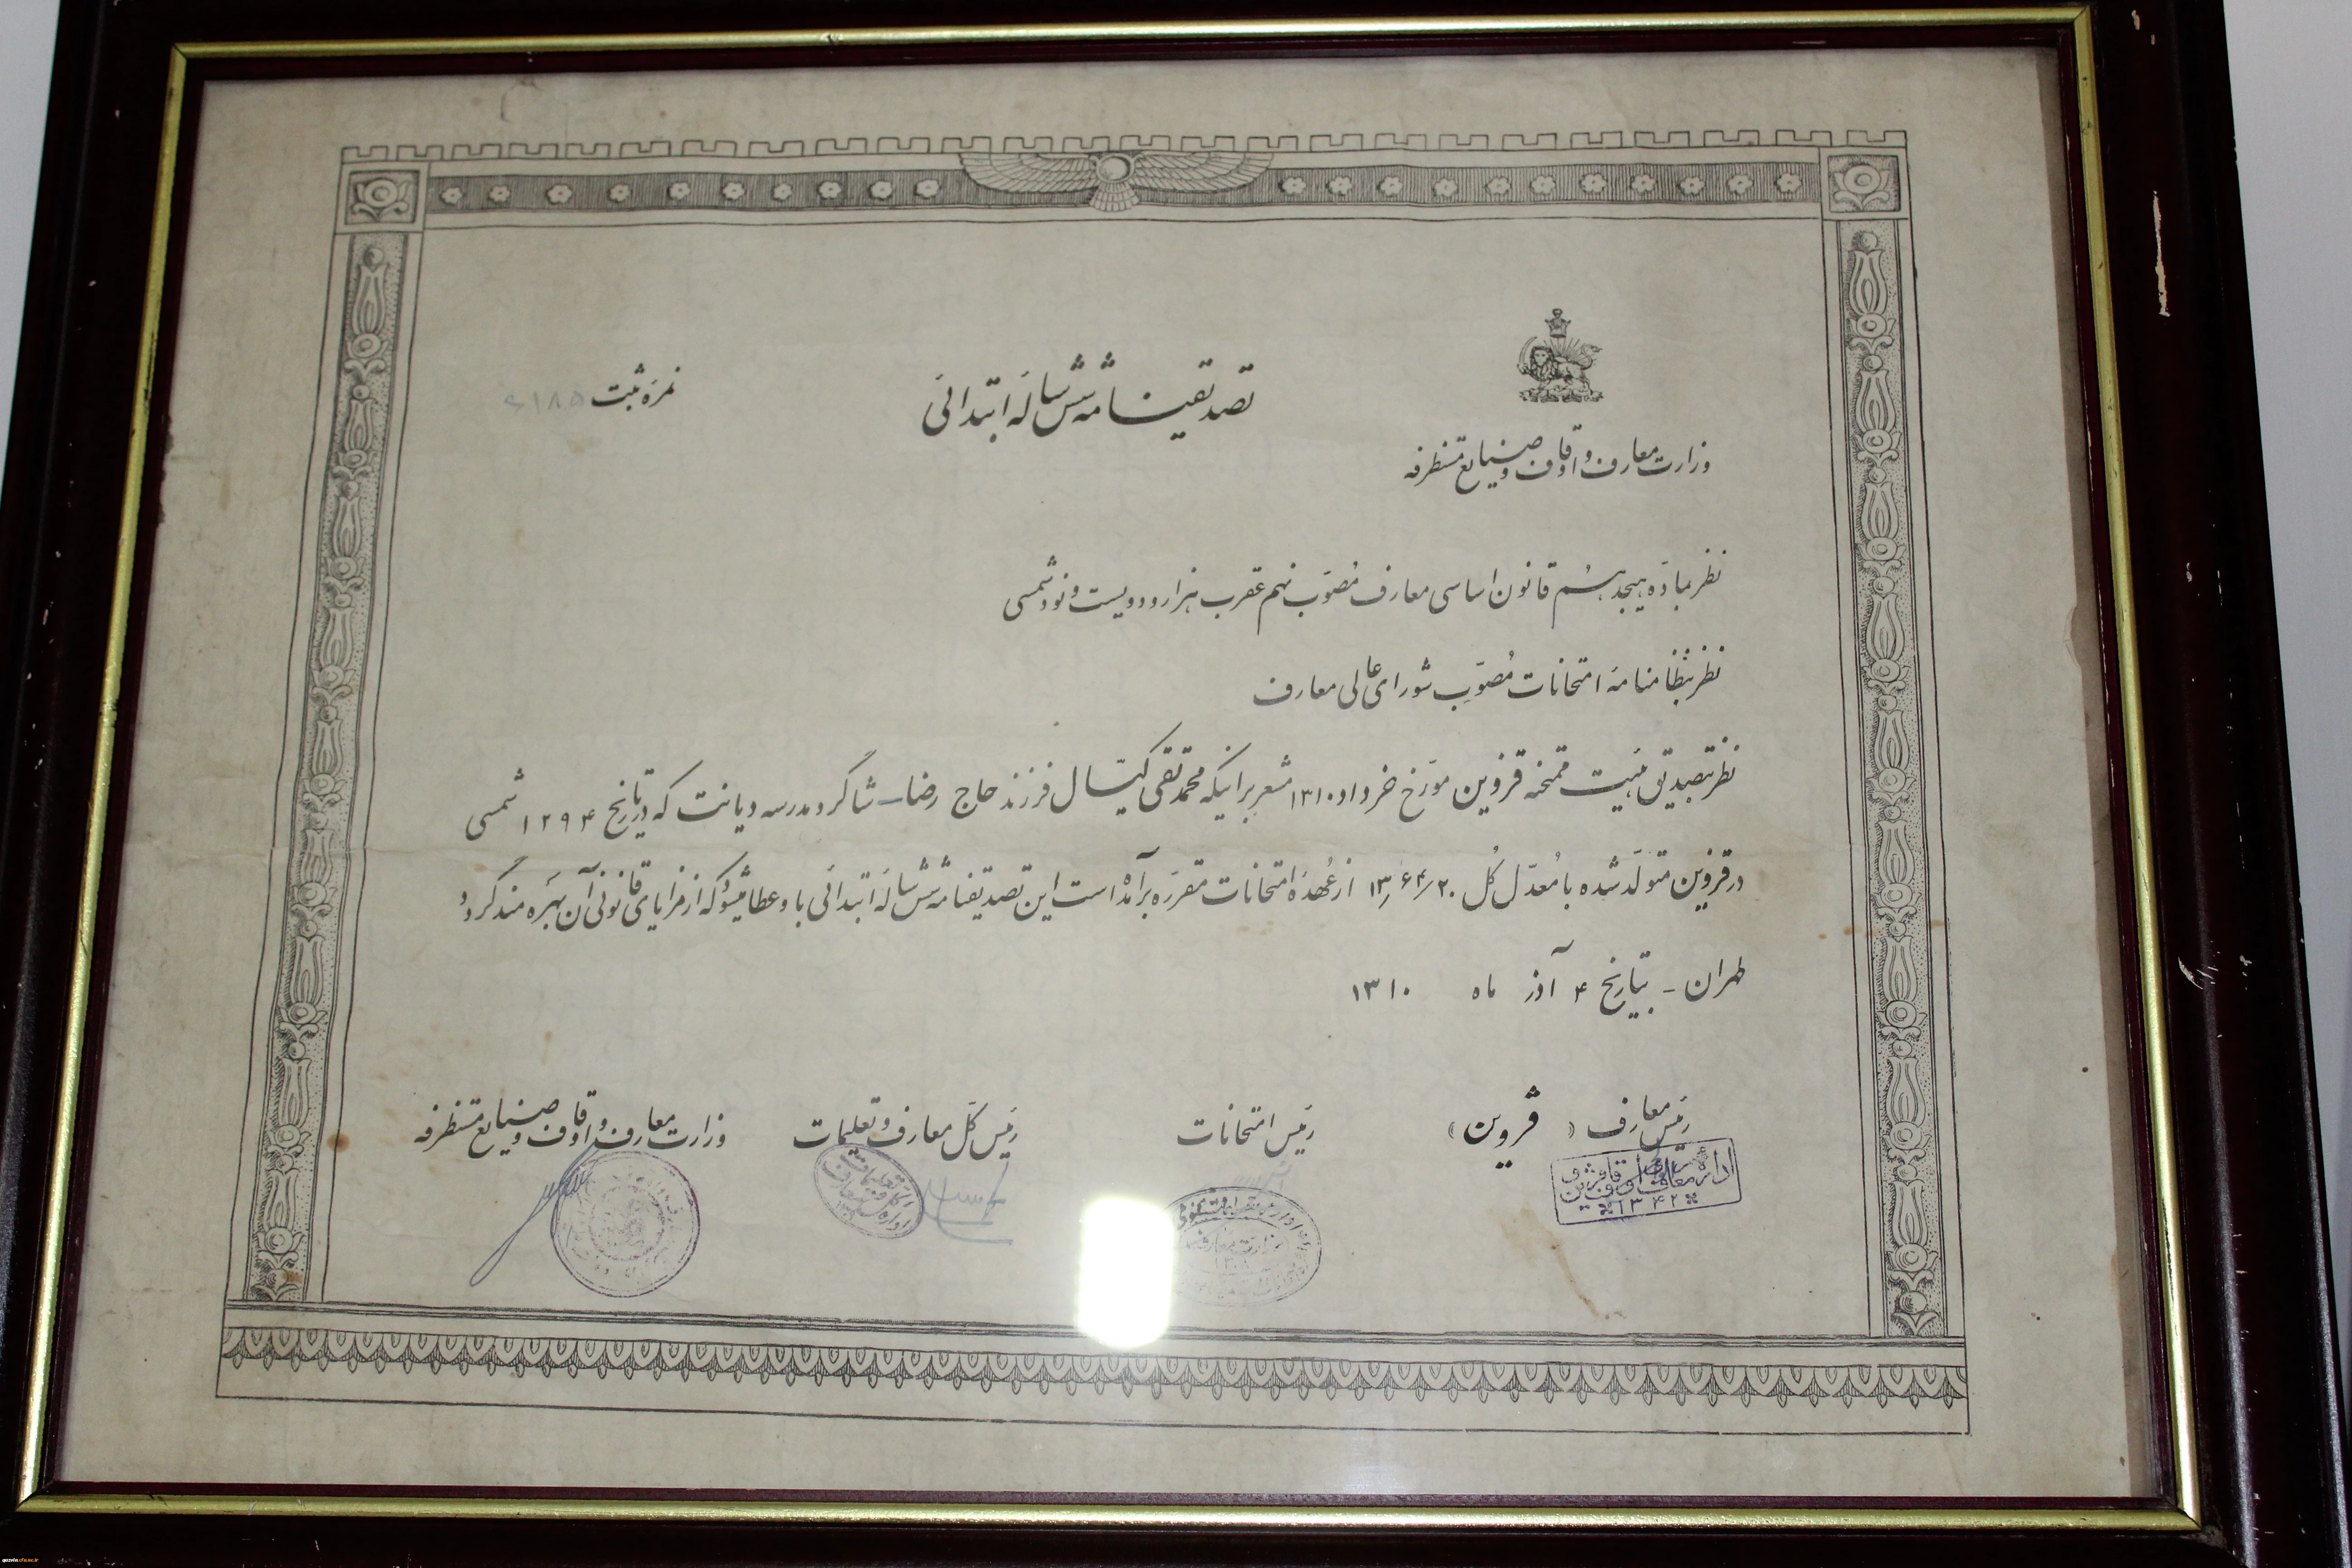 تصدیقنامه شش ساله ابتدائی
نمره ثبت
وزارت معارف و اوقاف و صنایع مستظرفه
نظر بماده هیجدهم قانون اساسی معارف مصوّب نهم عقرب هزار و دویست و نود شمسی
نظر بنظامنامه امتحانات مصوّب شورای عالی معارف
نظر بتصدیق هیئت ممتحنه قزوین مورّخ خرداد ۱۳۱۰ مشعر بر اینکه محمد تقی کیّال فرزند حاج رضا - شاگرد مدرسه دیانت که در تاریخ ۱۲۹۴ شمسی
در قزوین متولّد شده با معدّل کل ۱۳٫۶۴/۲۰ از عهده امتحانات مقرّره برآمده است این تصدیقنامه شش ساله ابتدائی باو عطا میشود که از مزایای قانونی آن بهره مند گردد
طهران - بتاریخ ۴ آذر ماه ۱۳۱۰
رئیس معارف ( قزوین )
رئیس امتحانات
رئیس کل معارف و تعلیمات
وزارت معارف و اوقاف و صنایع مستظرفه
اداره معارف و اوقاف قزوین
۱۳۴۲
qazvin.cfu.ac.ir